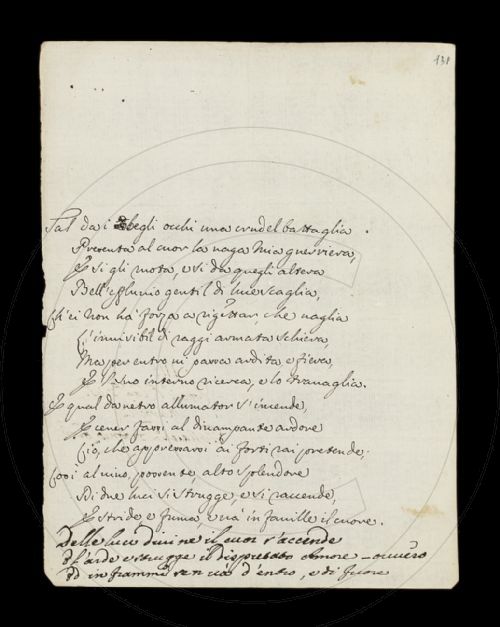 131
Tal da i begli occhi una crudel battaglia.
Presenta al cuor la vaga mia guerriera,
E sì gli nota, e sì da quegli altera
Bell'efluvio gentil di luce scaglia,
Ch'ei non ha forza a rigettar, che vaglia
L'invisibil di raggi armata schiera,
Ma per entro vi passa ardita e fiera,
E il suo interno ricerca, e lo travaglia.
E qual da vetro allumator s'incende,
E cener farsi al divampante ardore
Ciò, che appressarsi ai forti rai pretende;
Così al vivo, possente, alto splendore
Di due luci si strugge, e si raccende,
E stride e fuma, e va in faville il cuore.
Delle luci divine il cuor s'accende
e strugge il dispietato Amore ovvero
in fiamme sen va d'entro, e di fuore